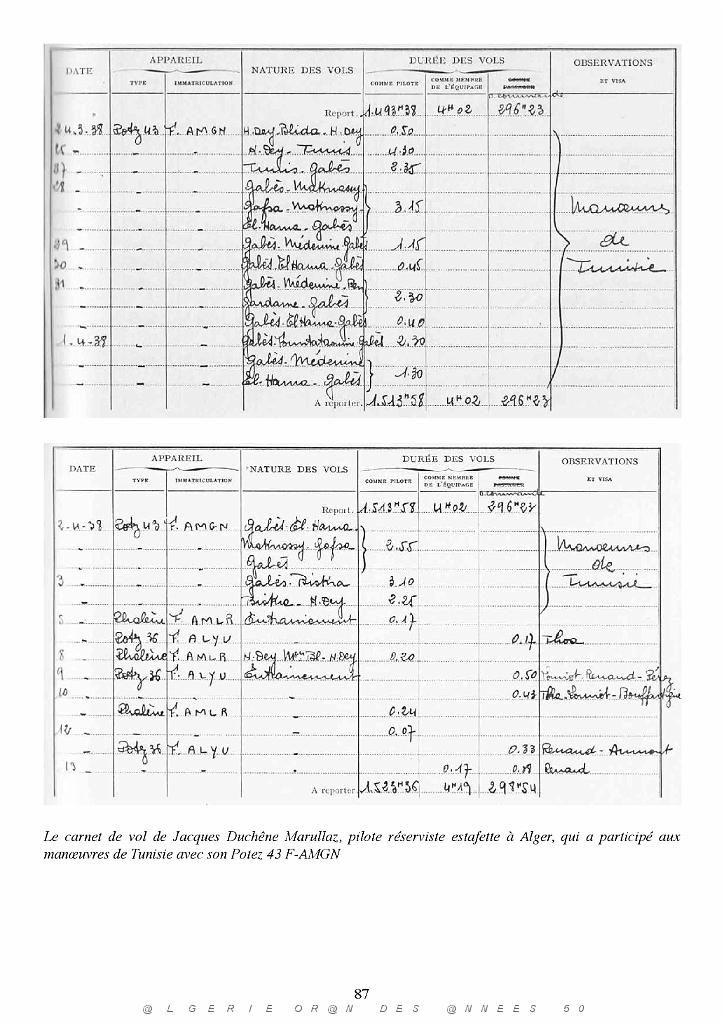 DATE APPAREIL NATURE DES VOLS DURÉE DES VOLS OBSERVATIONS
TYPE IMMATRICULATION COMME PILOTE COMME MEMBRE DE L'ÉQUIPAGE COMME PASSAGER ET VISA
D. commande
Report. 1.493ᴴ38 4ᴴ02 296ᴴ23
24.3.38 Potez 43 F. AMGN H.Dey-Blida-H.Dey 0.50
25 - - - H.Dey-Tunis 4.30
27 - - - Tunis-Gabès 2.35
28 - - - Gabès-Maknassy
- - Gafsa-Maknassy- 3.15 Manœuvres
- - El-Hama-Gabès
29 - - Gabès-Médenine Gabès 1.15 de
30 - - Gabès El Hama-Gabès 0.45 Tunisie
31 - - Gabès-Médenine-Ben
- - Gardame-Gabès 2.30
- - Gabès-El Hama-Gabès 0.40
1-4-38 - - Gabès-Foumtataouine Gabès 2.30
- - Gabès-Médenine
- - El-Hama-Gabès 1.30
A reporter. 1.513ᴴ58 4ᴴ02 296ᴴ23
DATE APPAREIL NATURE DES VOLS DURÉE DES VOLS OBSERVATIONS
TYPE IMMATRICULATION COMME PILOTE COMME MEMBRE DE L'ÉQUIPAGE COMME PASSAGER ET VISA
D. commande
Report. 1.513ᴴ58 4ᴴ02 296ᴴ23
2-4-38 Potz 43 F. AMGN Gabès-El Hama-
- - Maknossy-Gafsa 2.55 Manœuvres
- - Gabès de
3 - - Gabès-Biskra 3.10 Tunisie
- - Biskra-H.Dey 2.25
5 Phalène F. AMLR Entrainement 0.17
Potz 36 F. ALYU - 0.17
8 Phalène F. AMLR H.Dey Bl-H.Dey 0.20
9 - Potz 36 F. ALYU Entrainement 0.50 Renaud-Pérez
10 - - - 0.43
Phalène F. AMLR - 0.24
12 - - - - 0.07
Potz 36 F. ALYU - 0.33 Renaud-Aumont
13 - - - 0.17 0.08 Renaud
A reporter. 1.523ᴴ36 4ᴴ19 298ᴴ54
Le carnet de vol de Jacques Duchêne Marullaz, pilote réserviste estafette à Alger, qui a participé aux
manœuvres de Tunisie avec son Potez 43 F-AMGN
87
@ L G E R I E O R @ N D E S @ N N E E S 5 0